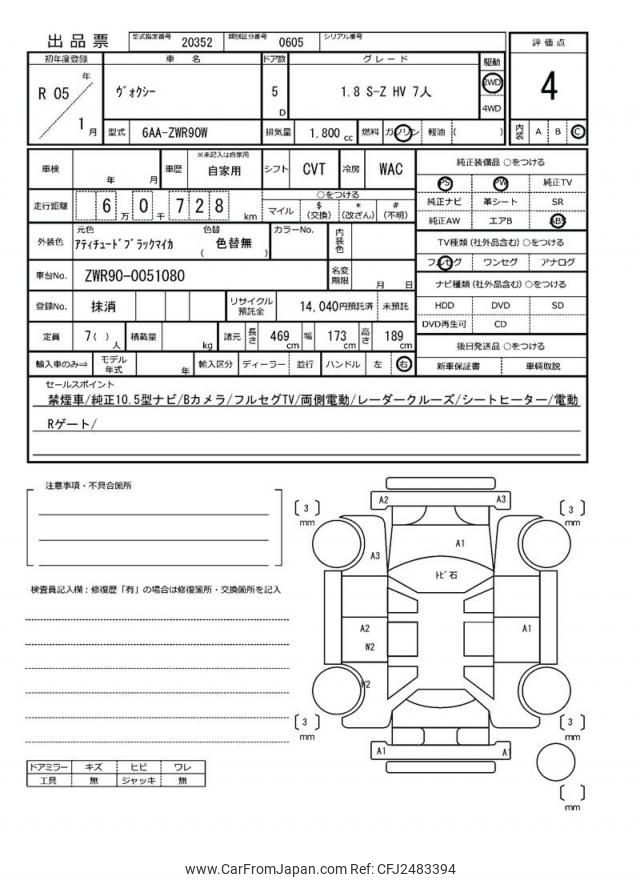 出品票 型式指定番号 20352 類別区分番号 0605 シリアル番号
評価点
4
内装 A B C
初年度登録 車名 ドア数 グレード 駆動
R 05 年 1 月
ヴォクシー 5 D 1.8 S-Z HV 7人 2WD 4WD
型式 6AA-ZWR90W 排気量 1,800 cc 燃料 ガソリン 軽油 ( )
車検 年 月 車歴 ※未記入は自家用 自家用 シフト CVT 冷房 WAC
走行距離 6 万 0 千 7 2 8 km
○をつける
マイル $ (交換) * (改ざん) # (不明)
外装色 元色 アティチュードブラックマイカ 色替 ( 色替無 ) カラーNo. 内装色
車台No. ZWR90-0051080 名変期限 月 日
登録No. 抹消 リサイクル預託金 14,040円預託済 未預託
定員 7( ) 人 積載量 kg 諸元 長さ 469 cm 幅 173 cm 高さ 189 cm
輸入車のみ⇒ モデル年式 年 輸入区分 ディーラー 並行 ハンドル 左 右
純正装備品 ○をつける
PS PW 純正TV
純正ナビ 革シート SR
純正AW エアB ABS
TV種類 (社外品含む) ○をつける
フルセグ ワンセグ アナログ
ナビ種類 (社外品含む) ○をつける
HDD DVD SD
DVD再生可 CD
後日発送品 ○をつける
新車保証書 車輌取説
セールスポイント
禁煙車/純正10.5型ナビ/Bカメラ/フルセグTV/両側電動/レーダークルーズ/シートヒーター/電動
Rゲート/
注意事項・不具合箇所
検査員記入欄：修復歴「有」の場合は修復箇所・交換箇所を記入
ドアミラー キズ ヒビ ワレ
工具 無 ジャッキ 無
A2 A3
[ 3 ] mm
[ 3 ] mm
A1
A3
トビ石
A2
W2
A1
W2
[ 3 ] mm
[ 3 ] mm
A1 A1
[ ] mm
www.CarFromJapan.com Ref: CFJ2483394